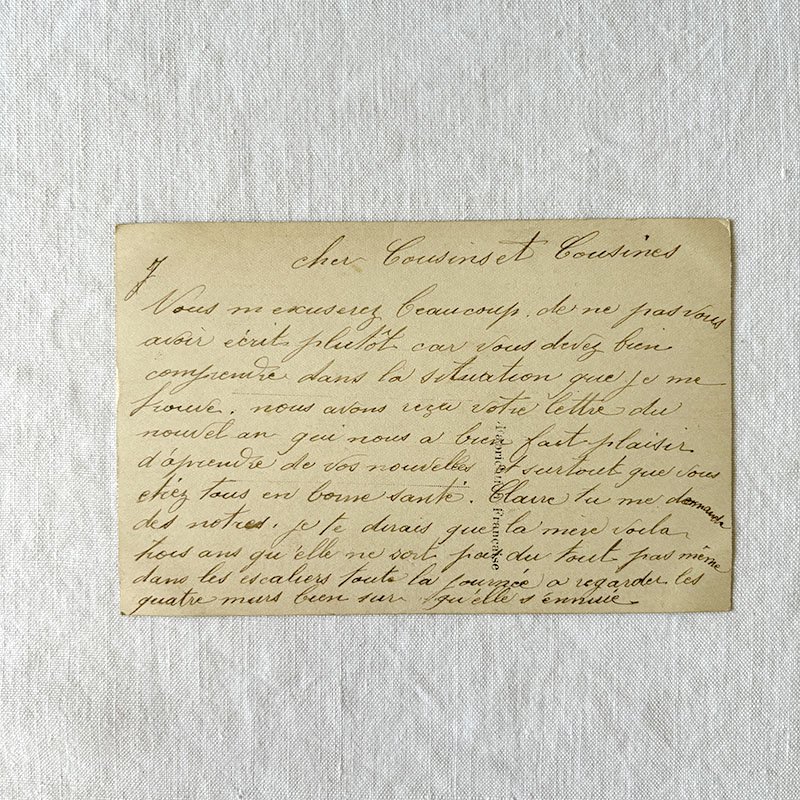 cher Cousins et Cousines
Vous m exuserez beaucoup. de ne pas vous
avoir écrit plutôt car vous devez bien
comprendre dans la situation que je me
trouve. nous avons reçu votre lettre du
nouvel an qui nous a bien fait plaisir
d'aprendre de vos nouvelles et surtout que vous
étiez tous en bonne santé. Claire tu me demande
des notres. je te dirais que la mère voila
trois ans qu'elle ne sort pas du tout pas même
dans les escaliers toute la journée a regarder les
quatre murs bien sur qu'elle s'ennuie.
Française